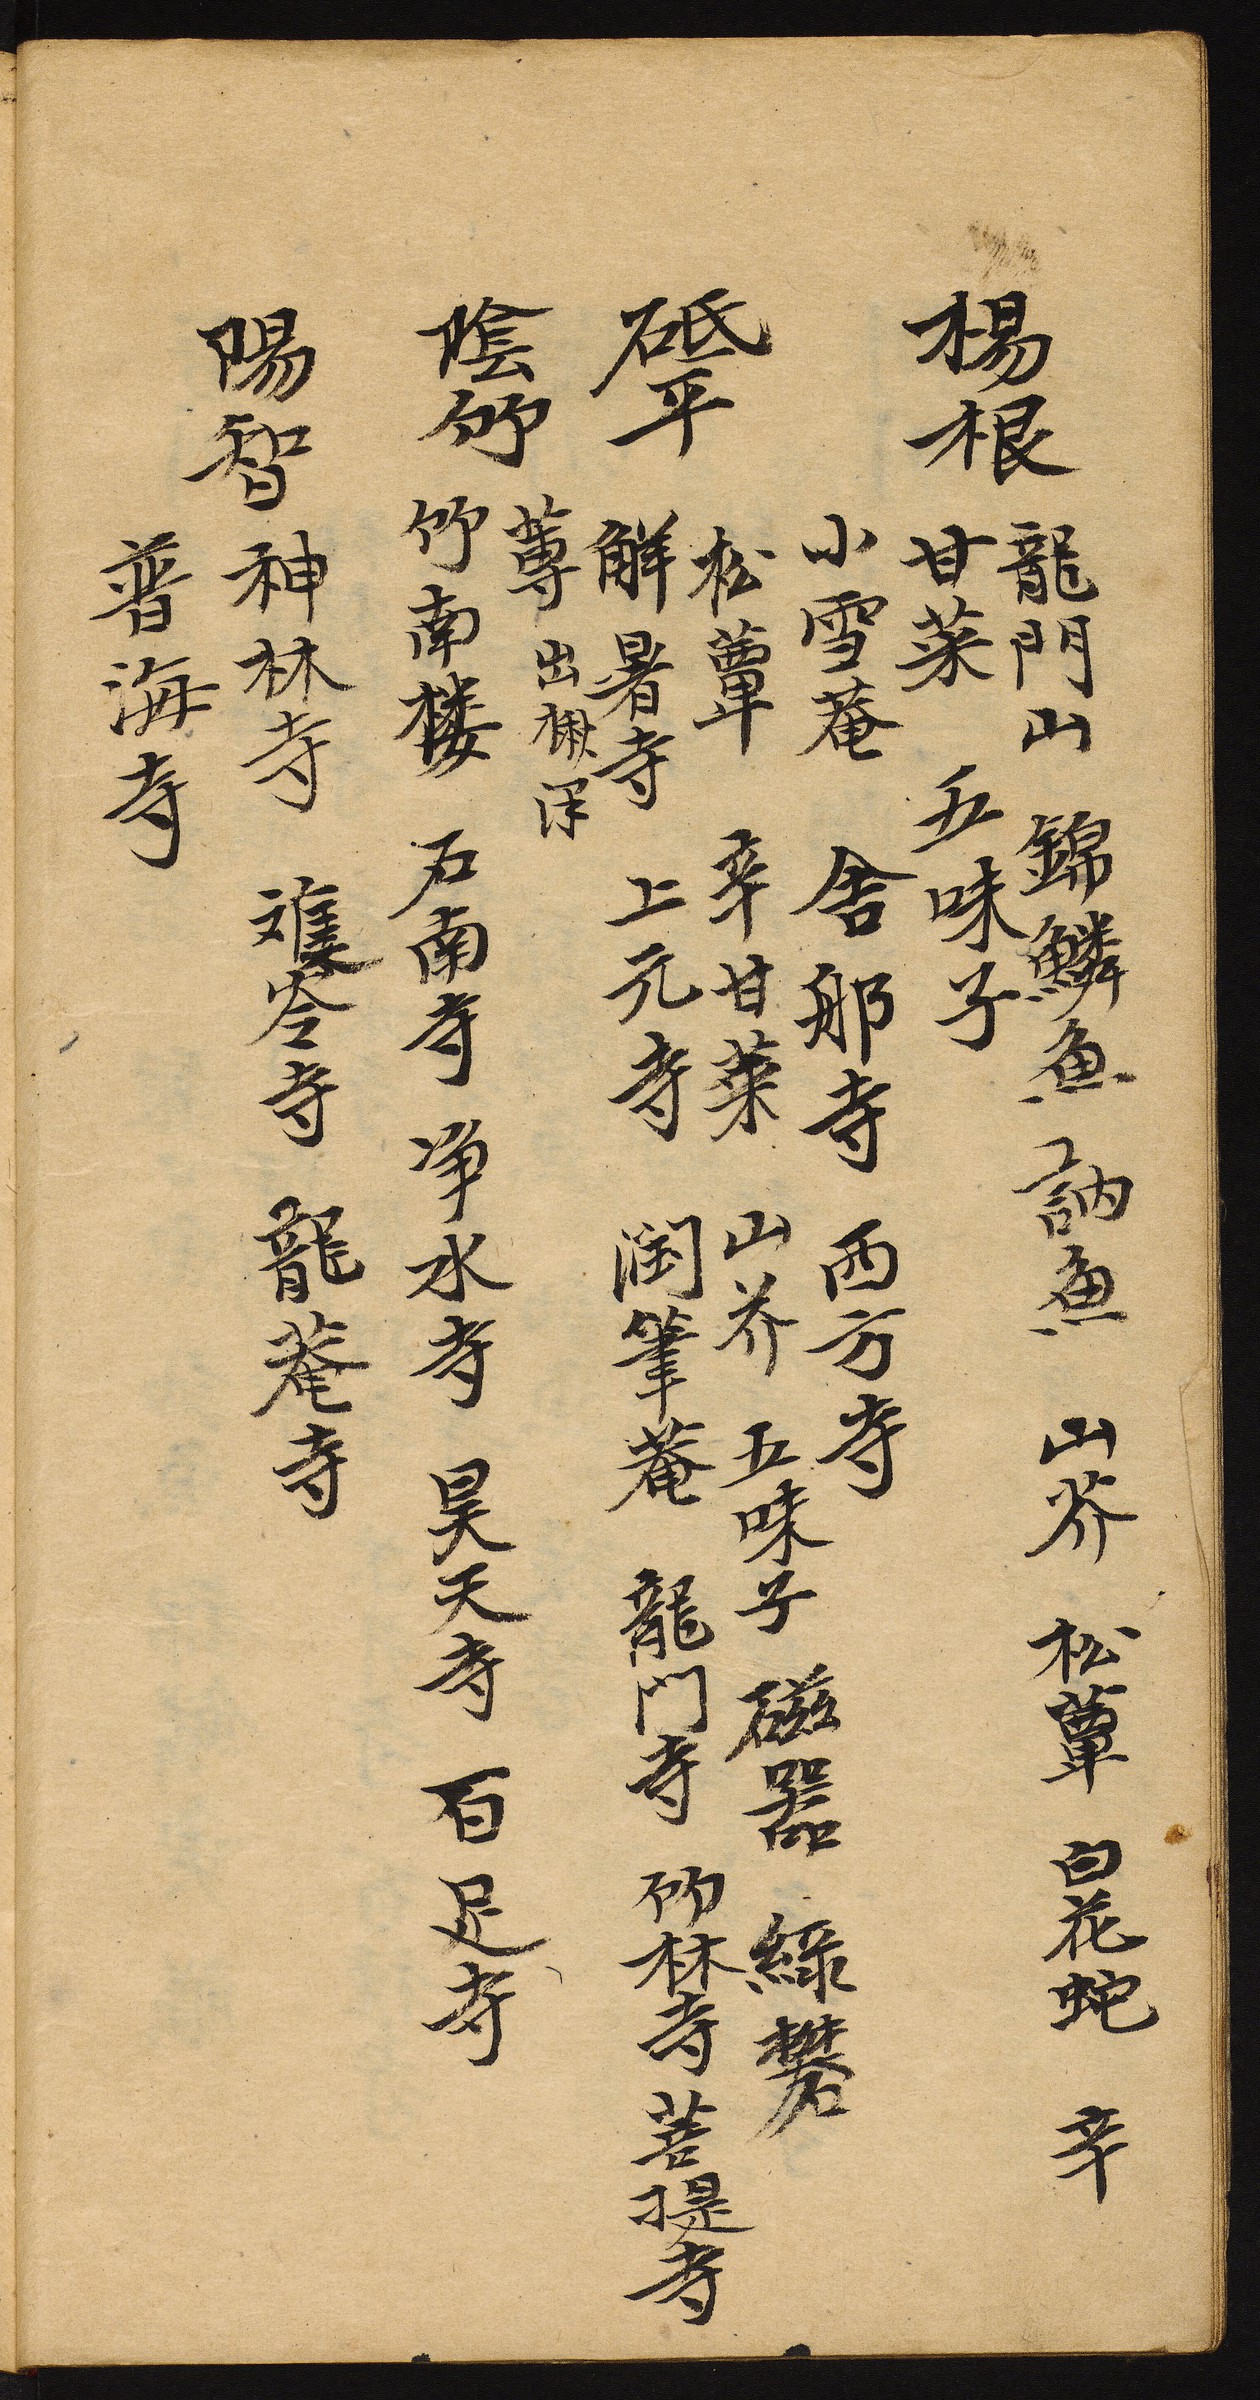 楊根
龍門山 錦鱗魚 訥魚 山芥 松蕈 白花蛇 辛
甘菜 五味子
小雪菴 舍那寺 西方寺
砥平
松蕈 辛甘菜 山芥 五味子 磁器 綠礬
解暑寺 上元寺 潤筆菴 龍門寺 竹林寺 菩提寺
陰竹
蓴 出
竹南楼 石南寺 净水寺 昊天寺 百足寺
陽智
神林寺 寺 龍菴寺
普海寺